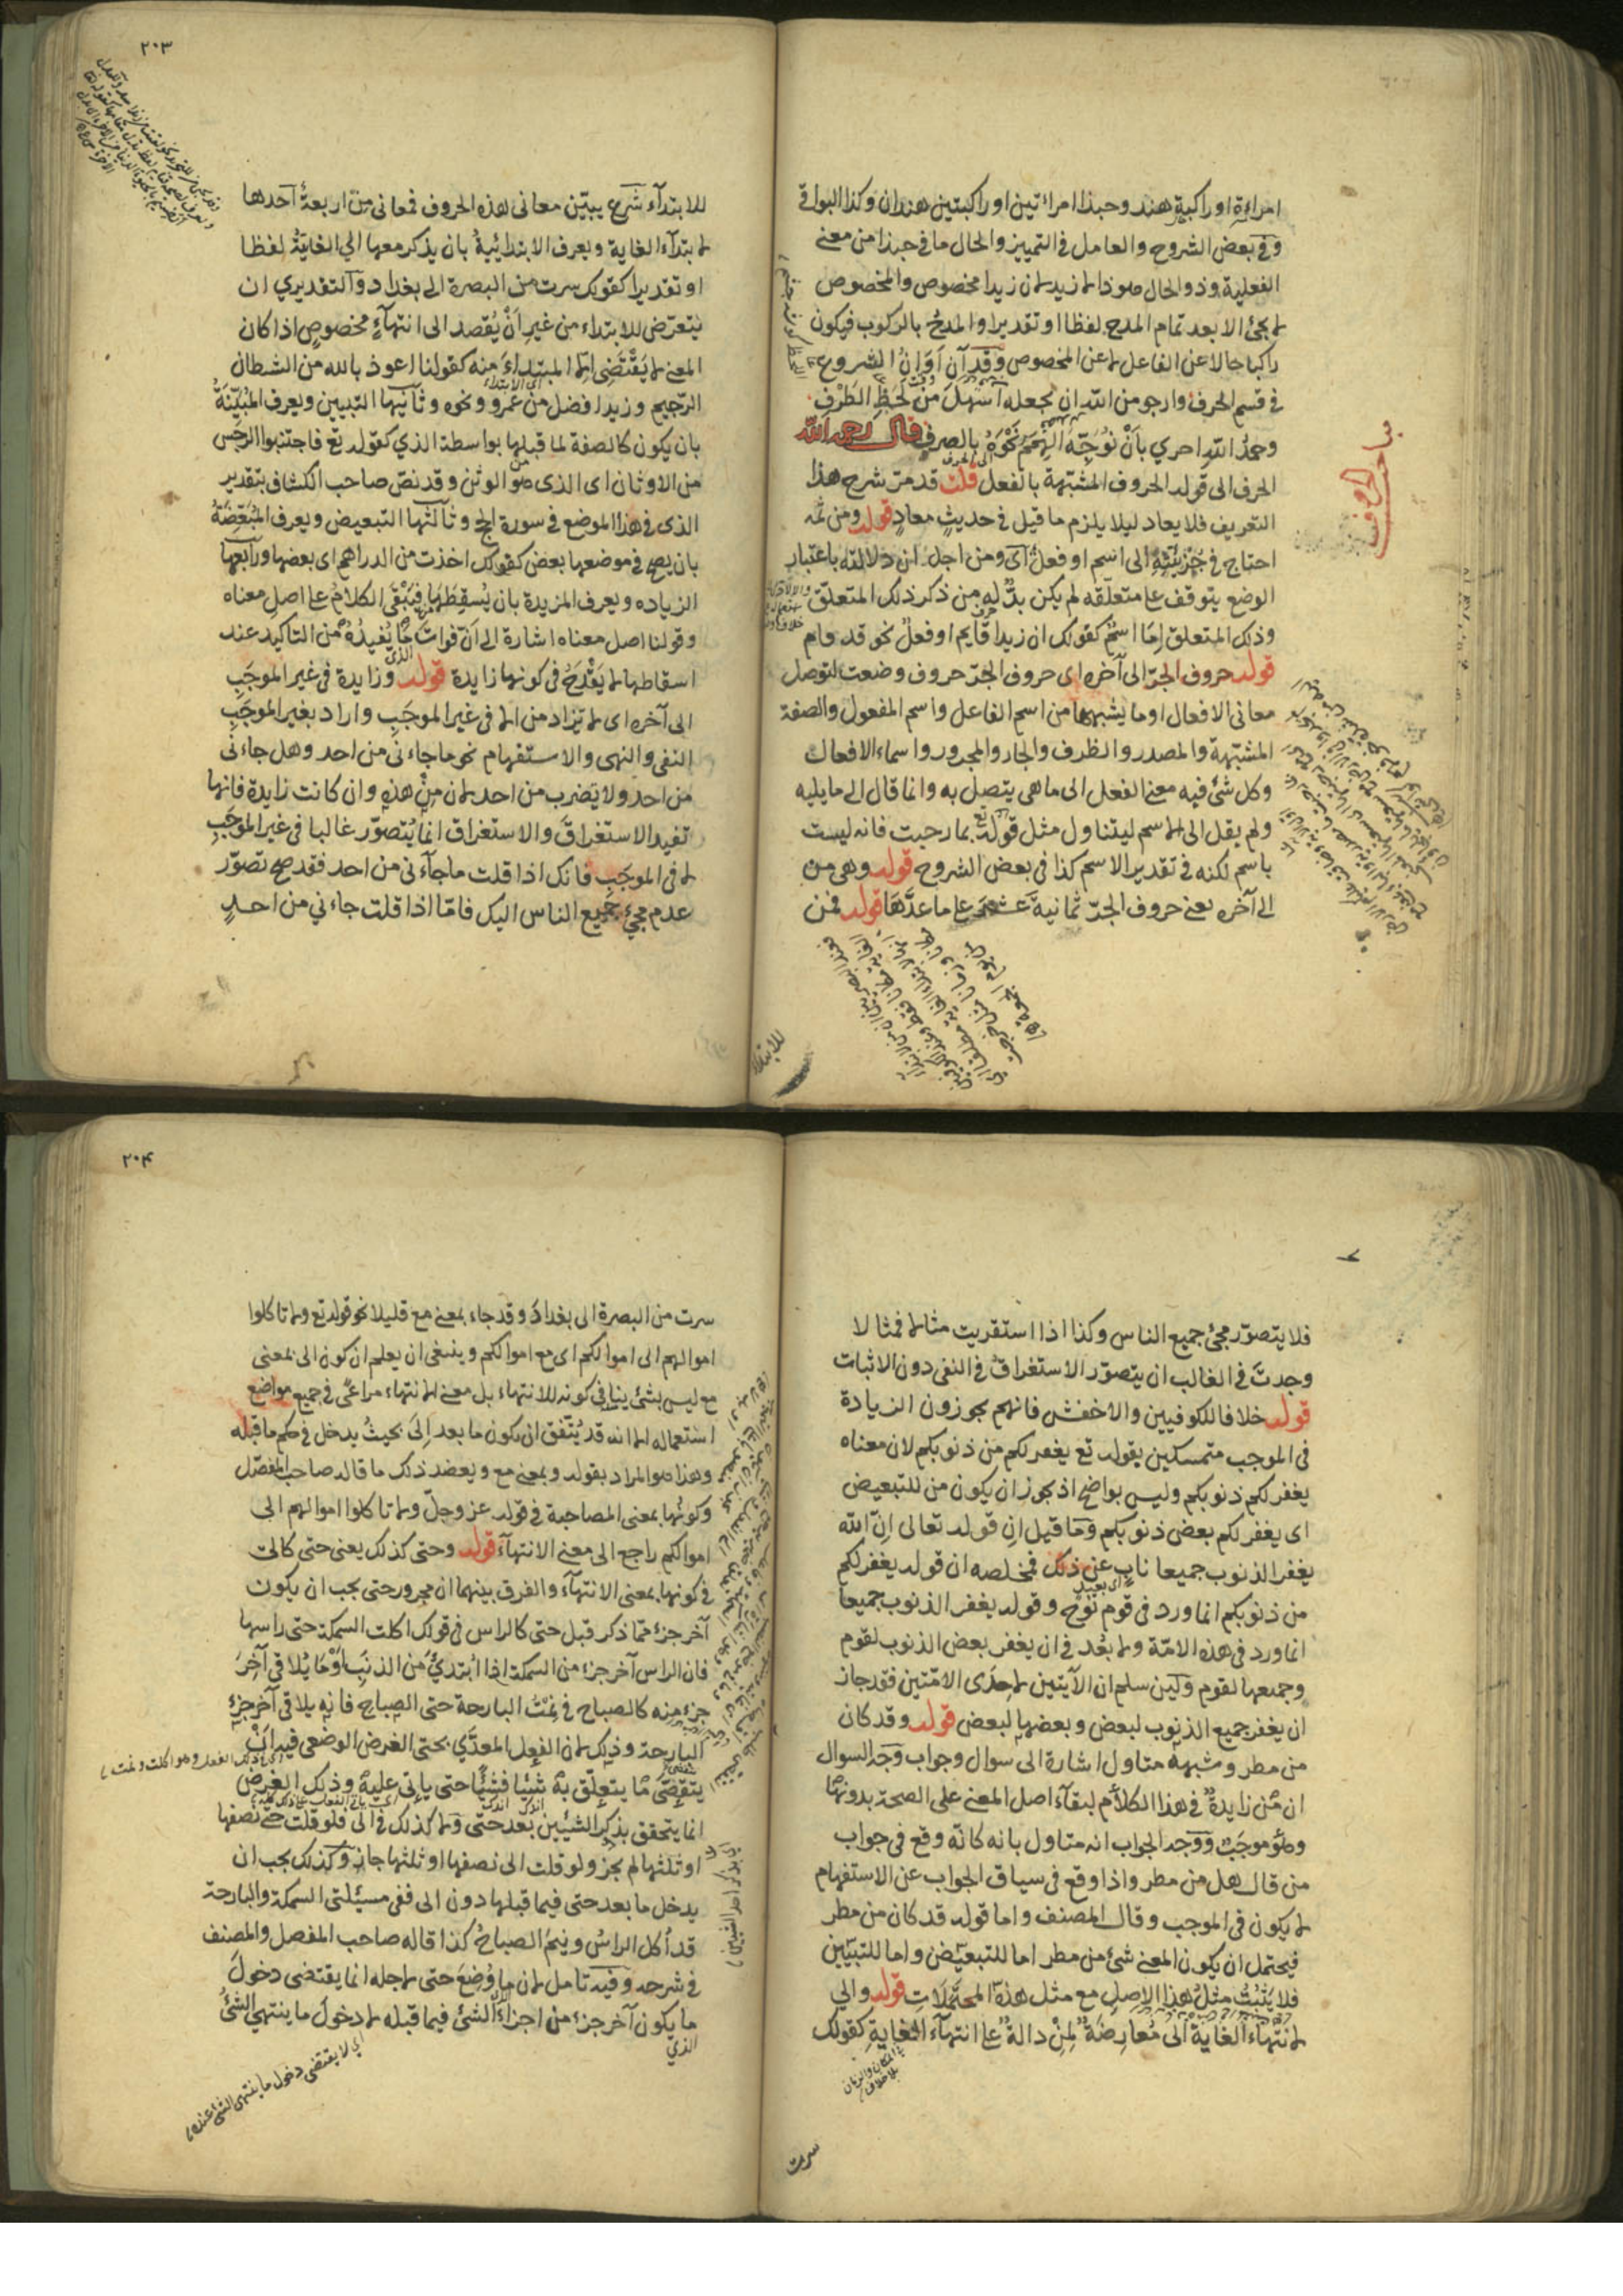 امراءة او راكبة هند وحبذا امراءتين او راكبتين هندان وكذا البواقى
وفى بعض الشروح والعامل فى التمييز والحال ما فى حبذا من معنى
الفعلية وذو الحال هو ذا لا زيد لان زيدا مخصوص والمخصوص
لا يجئ الا بعد تمام المدح لفظا او تقديرا والمدح بالركوب فيكون
راكبا حالا عن الفاعل لا عن المخصوص وقد آن اَوَانُ الشروع
فى قسم الحرف وارجو من الله ان يجعله اَسْهَلَ مِنْ لَحَظِ الطَرْفِ
وحمدُ اللهِ احرى بِاَنْ نُوَجِّهَ الْهِمَمَ نَحْوَهُ بالصرفِ قال رحمه الله
الحرف الى قوله الحروف المشبّهة بالفعل قلت قد مرّ شرح هذا
التعريف فلا يعاد ليلا يلزم ما قيل فى حديثٍ معادٍ قوله ومن ثمه
احتاج فى جُزْئِيَّتِهِ الى اسم او فعل اى ومن اجل ان دلالته باعتبار
الوضع يتوقف على متعلّقه لم يكن بدٌّ له من ذكر ذلك المتعلّق
وذلك المتعلق اِمّا اسمٌ كقولك ان زيدا قايم او فعلٌ نحو قد قام
قوله حروف الجرّ الى آخره اى حروف الجرّ حروف وضعت لتوصل
معانى الافعال او ما يشبهها من اسم الفاعل واسم المفعول والصفة
المشبّهة والمصدر والظرف والجار والمجرور واسماء الافعال
وكل شئ فيه معنى الفعل الى ما هى يتصل به وانما قال الى ما يليه
ولم يقل الى الاسم ليتناول مثل قوله تع بما رحبت فانه ليست
باسم لكنه فى تقدير الاسم كذا فى بعض الشروح قوله وهى من
الى آخره يعنى حروف الجرّ ثمانية عشر على ما عدَّهَا قوله فمن
مباحث الحروف
للابتداء
٢٠٣
للابتدآء شَرع يبيّن معانى هذه الحروف فمعانى مِنْ اربعةٌ آحدها
لابتدآء الغاية ويعرف الابتدائيةُ بان يذكر معها الى الغايَةُ لفظا
او تقديرا كقولك سرت من البصرة الى بغداد وآلتقديرى ان
يتعرّض للابتداء من غيرِ اَنْ يُقصد الى انتهآءٍ مخصوصٍ اذا كان
المعنى لا يَقْتَضِى الا المبتداءَ منه كقولنا اعوذ بالله من الشطان
الرّجيم وزيد افضل من عمرو ونحوه وثآنيها التبيين ويعرف المُبَيِّنَةُ
بان يكون كالصفة لما قبلها بواسطة الذي كقوله تع فاجتنبوا الرجس
من الاوثان اى الذى هو الوثن وقد نصّ صاحب الكشاف بتقدير
الذى فى هذا الموضع فى سورة الحج وثآلثها التبعيض ويعرف المُبَعِّضَةُ
بان يصح فى موضعها بعض كقولك اخذت من الدراهم اى بعضها ورآبعها
الزياده ويعرف المزيدة بان يُسقِطَهَا فيَبْقَى الكلامُ على اصلِ معناه
وقولنا اصل معناه اشارة الى اَنّ فواتَ مَا يُفِيدُهُ من التاكيد عند
اسقاطها لا يَقْدَحُ فى كونها زايدة قوله وزايدة فى غير الموجَبِ
الى آخره اى لا تزاد من الا فى غير الموجَبِ واراد بغير الموجَبِ
النفى والنهى والاستفهام نحو ما جاءنى من احد وهل جاءنى
من احد ولا يضرب من احد لان مِنْ هذه وان كانت زايدة فانها
تفيد الاستغراقَ والاستغراق انما يُتصوّر غالبا فى غير الموجَبِ
لا فى الموجَبِ فانك اذا قلت ما جآءنى من احد فقد صح تصوّر
عدم مجئِ جميع الناس اليك فامّا اذا قلت جاءني من احدٍ
فلا يتصوّر مجئ جميع الناس وكذا اذا استقريت مثالا فمثالا
وجدتَ فى الغالب ان يتصوّر الاستغراقُ فى النفى دون الاثبات
قوله خلافا للكوفيين والاخفش فانهم يجوزون الزيادة
فى الموجب متمسكين بقوله تع يغفر لكم من ذنوبكم لان معناه
يغفر لكم ذنوبكم وليس بواضح اذ يجوز ان يكون من للتبعيض
اى يغفر لكم بعض ذنوبكم وَمَا قيل اِن قوله تعالى اِنّ الله
يغفر الذنوب جميعا نابٍ عن ذلك فمخلصه ان قوله يغفر لكم
من ذنوبكم انما ورد فى قوم نُوح وقوله يغفر الذنوب جميعا
انما ورد فى هذه الامّة ولا بُعْد فى ان يغفر بعض الذنوب لقوم
وجميعها لقوم ولَئِن سلم ان الآيتين لاحدَى الامّتين فقد جاز
ان يغفر جميع الذنوب لبعض وبعضها لبعض قوله وقد كان
من مطر وشبهه متاول اشارة الى سوال وجواب وَجه السوال
ان مِنْ زايدةٌ فى هذا الكلام لبقآء اصل المعنى على الصحة بدونها
وهُو موجَبٌ وَوَجه الجواب انه متاول بانه كانّه وقع فى جواب
من قال هل من مطر واذا وقع فى سياق الجواب عن الاستفهام
لا يكون فى الموجب وقال المصنف واما قوله قد كان من مطر
فيحتمل ان يكون المعنى شئ من مطر اما للتبعيض واما للتبيين
فلا يَثْبُتُ مثلُ هذا الاصلِ مع مثل هذه المحتَمَلاتِ قوله والى
لانتهآء الغاية الى مُعارِضَةٌ لِمِنْ دالةٌ على انتهآء الغاية كقولك
سرت
٢٠٤
سرت من البصرة الى بغداد وقد جاء بمعنى مع قليلا نحو قوله تع ولا تاكلوا
اموالهم الى اموالكم اى مع اموالكم وينبغى ان يعلم ان كون الى بمعنى
مع ليس بشئ ينافى كونه للانتهاء بل معنى الانتهاء مراعًى فى جميع مواضع
استعماله الا انه قد يُتّفق ان يكون ما بعد اِلَى بحيثُ يدخل فى حكم ما قبله
وهذا هو المراد بقوله وبمعنى مع ويعضد ذلك ما قاله صاحب المفصّل
وكونُها بمعنى المصاحبة فى قوله عز وجلّ ولا تاكلوا اموالهم الى
اموالكم راجع الى معنى الانتهآء قوله وحتى كذلك يعنى حتى كالى
فى كونها بمعنى الانتهآء والفرق بينهما ان مجرور حتى يجب ان يكون
آخر جزءٍ ممّا ذكر قبل حتى كالراس فى قولك اكلت السمكة حتى راسها
فان الراس آخر جزءٍ من السمكة اذا ابْتدئَ من الذنَبِ اَوْ مَا يُلاقى آخِرَ
جزءٍ منه كالصباح فى نِمْتُ البارحة حتى الصباحِ فانه يلاقى آخر جزءِ
البارحة وذلك لان الفعل المعدَّي بحتى الغرض الوضعى فيه اَنْ
يتقضّى ما يتعلّق به شيئا فشيئا حتى ياتى عليه وذلك الغرض
انما يتحقق بذكر الشيئين بعد حتى وَلا كذلك فى الى فلو قلت حتى نصفها
او ثلثها لم يجز ولو قلت الى نصفها او ثلثها جاز وَكذلك يجب ان
يدخل ما بعد حتى فيما قبلها دون الى ففى مسئلتى السمكة والبارحة
قد اُكل الراسُ ونِيمَ الصباحُ كذا قاله صاحب المفصل والمصنف
فى شرحه وَفيه تامل لان ما وُضِعَ حتى لاجله انما يقتضى دخولَ
ما يكون آخر جزءٍ من اجزاء الشئ فيما قبله لا دخولَ ما ينتهى الشئُ
الذي
اى لا يقتضى دخول ما ينتهى الشئ عنده